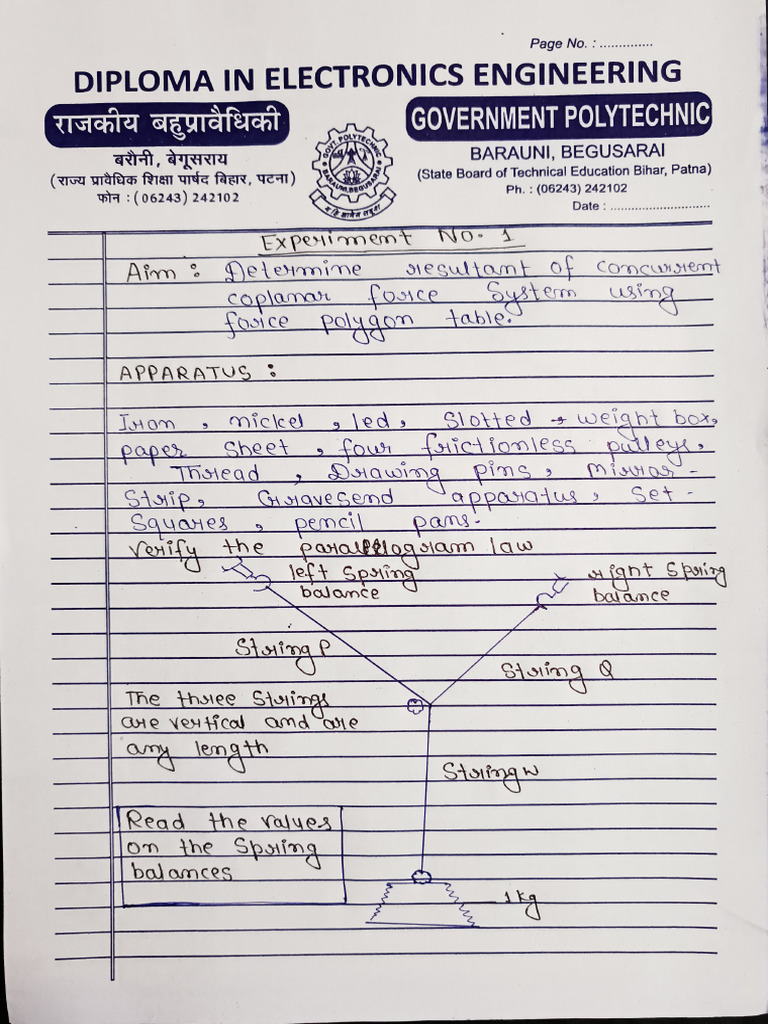 Page No. : ..............
DIPLOMA IN ELECTRONICS ENGINEERING
राजकीय बहुप्रावैधिकी
GOVERNMENT POLYTECHNIC
बरौनी, बेगूसराय
(राज्य प्रावैधिक शिक्षा पार्षद बिहार, पटना)
फोन : (06243) 242102
GOVT. POLYTECHNIC
BARAUNI, BEGUSARAI
BARAUNI, BEGUSARAI
(State Board of Technical Education Bihar, Patna)
Ph. : (06243) 242102
Date : ............................
Experiment No. 1
Aim : Determine resultant of concurrent
coplanar force System using
force polygon table.
APPARATUS :
Iron, nickel, led, Slotted → weight box,
paper sheet, four frictionless pulleys,
Thread, Drawing pins, Mirrar-
Strip, Gravesend apparatus, Set-
Squares, pencil pans-
verify the parallelogram law
left Spring
balance
right Spring
balance
String P
String Q
The three Strings
are vertical and are
any length
String W
Read the values
on the Spring
balances
1 kg